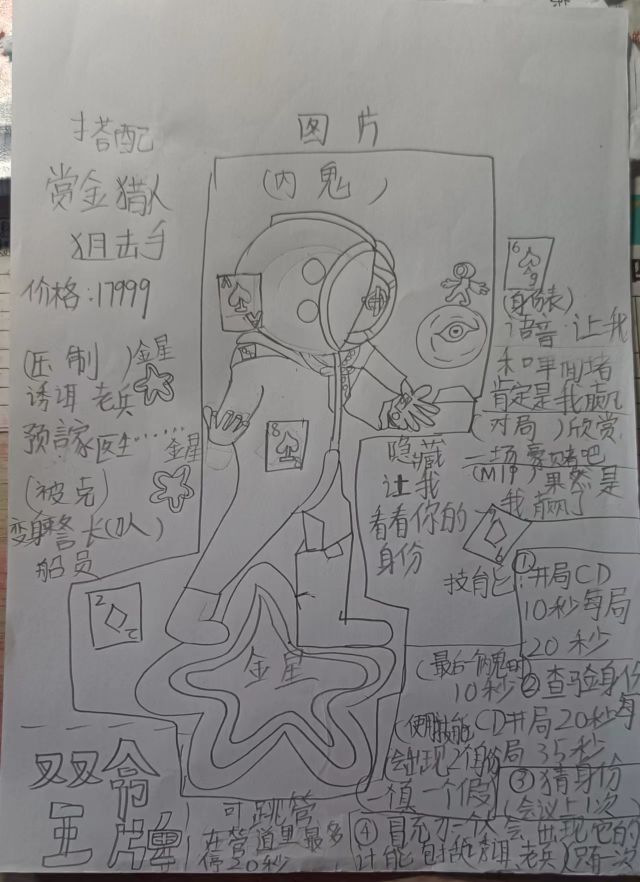 图片
(内鬼)
搭配
赏金猎人
狙击手
价格:17999
(压制)金星
诱饵 老兵
预言家 医生……金星
(被克)
变身警长(队)
船员
A
8
6
9
(身份表)
语音:让我
和
肯定是我赢
(对局)欣赏
一场豪赌吧
(MIP)果然是
我赢了
隐藏
让我
看看你的
身份
技能
①开局CD
10秒每局
20秒
(最后一个内鬼时
10秒
②查验身份
CD开局20秒每
局35秒
(使用技能
会出现2个身份
一真一假
③猜身份
(会议上1次
2
2
金星
双
王牌
可跳管
在管道里最多
停20秒
④冒充
只有一次